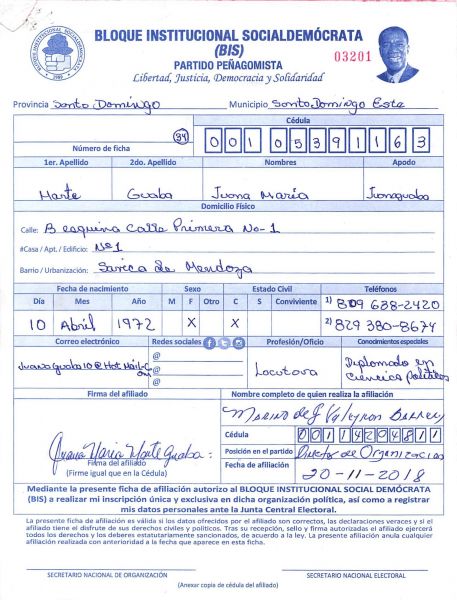 BLOQUE INSTITUCIONAL SOCIALDEMÓCRATA
(BIS)
03201
PARTIDO PEÑAGOMISTA
Libertad, Justicia, Democracia y Solidaridad
Provincia Santo Domingo Municipio Santo Domingo Este
Cédula
34 001 0539116 3
Número de ficha
1er. Apellido 2do. Apellido Nombres Apodo
Monte Guaba Juana María Juanaguaba
Domicilio Físico
Calle: B esquina Calle Primera No-1
#Casa / Apt. / Edificio: Nº1
Barrio / Urbanización: de Mendoza
Fecha de nacimiento Sexo Estado Civil Teléfonos
Día Mes Año M F Otro C S Conviviente 1) 809 638-2420
10 Abril 1972 X X 2) 829 380-8674
Correo electrónico Redes sociales Profesión/Oficio Conocimientos especiales
Juanaguaba10@Hotmail-Com @ @ @ Locutora Diplomado en ciencia políticas
Firma del afiliado Nombre completo de quien realiza la afiliación
Marino de J
Cédula 001 1429481 1
Juana Maria Monte Guaba:
Posición en el partido Director de Organización
Firma del afiliado
(Firme igual que en la Cédula)
Fecha de afiliación 20-11-2018
Mediante la presente ficha de afiliación autorizo al BLOQUE INSTITUCIONAL SOCIAL DEMÓCRATA
(BIS) a realizar mi inscripción única y exclusiva en dicha organización política, así como a registrar
mis datos personales ante la Junta Central Electoral.
La presente ficha de afiliación es válida si los datos ofrecidos por el afiliado son correctos, las declaraciones veraces y si el
afiliado tiene el disfrute de sus derechos civiles y políticos. Tras su recepción, sello y firma autorizadas el afiliado ejercerá
todos los derechos y los deberes estatutariamente sancionados, de acuerdo a la ley. La presente afiliación anula cualquier
afiliación realizada con anterioridad a la fecha que aparece en esta ficha.
SECRETARIO NACIONAL DE ORGANIZACIÓN SECRETARIO NACIONAL ELECTORAL
(Anexar copia de cédula del afiliado)